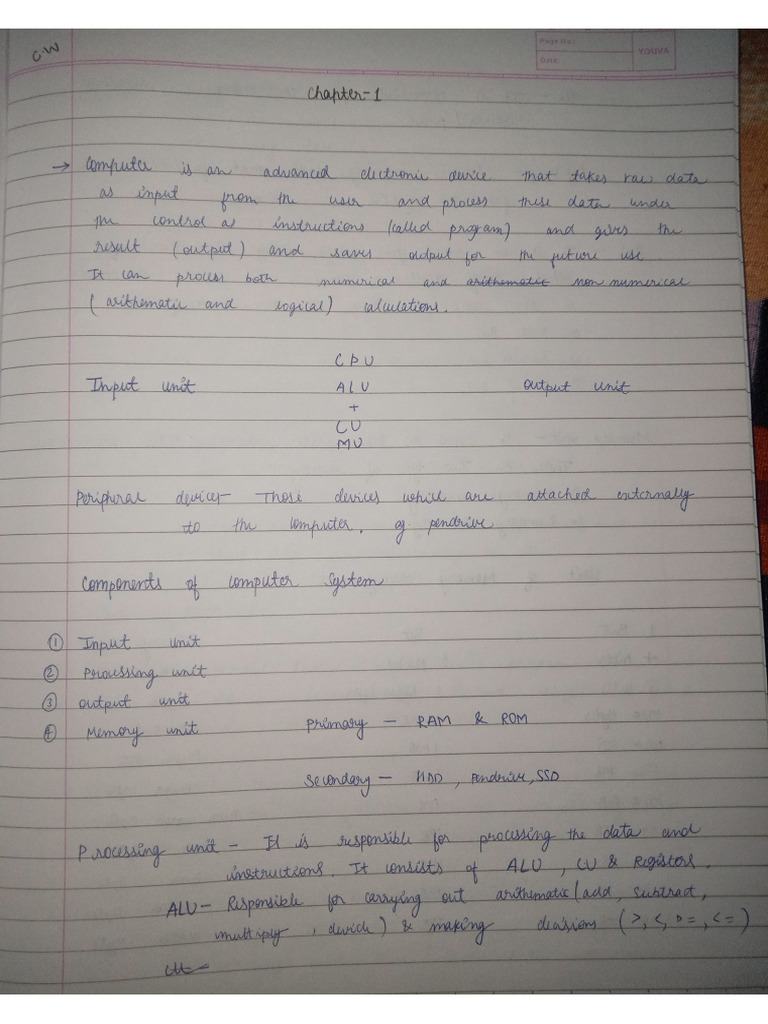 CW
Page No.:
Date:
YOUVA
Chapter-1
→ Computer is an advanced electronic device that takes raw data
as input from the user and process these data under
the control as instructions (called program) and gives the
result (output) and saves output for the future use.
It can process both numerical and arithematic non numerical
(arithematic and logical) calculations.
CPU
Input unit ALU Output unit
+
CU
MU
Peripheral devices - Those devices which are attached externally
to the computer. eg pendrive
Components of computer system
① Input unit
② Processing unit
③ Output unit
④ Memory unit Primary - RAM & ROM
Secondary - HDD, Pendrive, SSD
Processing unit - It is responsible for processing the data and
instructions. It consists of ALU, CU & Registers.
ALU - Responsible for carrying out arithematic (add, subtract,
multiply, devide) & making decisions (>, <, >=, <=)